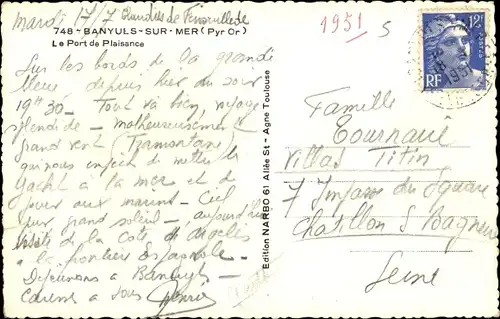 Mardi 17/7
1951
S
748 - BANYULS-SUR-MER (Pyr Or)
Le Port de Plaisance
12F
POSTES
RF
Sur les bords de la grande
bleue, depuis hier au soir
19h30 - Tout va bien, voyage
splendide - malheureusement
grand vent (Tramontane)
qui nous empêche de mettre le
Yacht à la mer et de
jouer aux marins - Ciel
pur grand soleil - aujourd'hui
visite de la côte
à la frontière Espagnole -
Déjeunons à Banuyls -
à tous Henri
Edition NARBO 61 Allée St - Agne Toulouse
Famille
Villas Titin
7 Impasse du Square
Chatillon S Bagneux
Seine